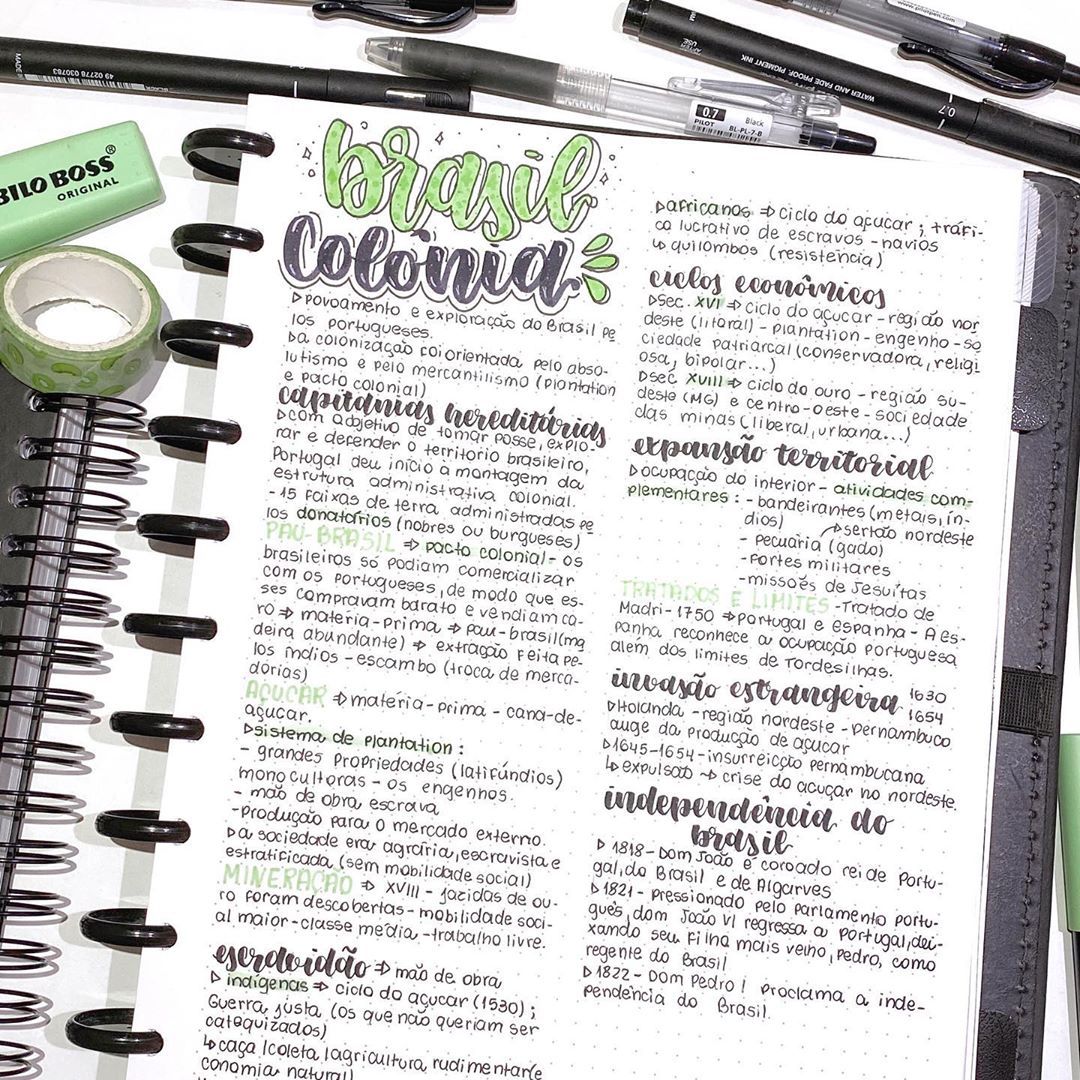 MADE
49 02778 030783
BLACK
0.7
Black
PILOT
BL-PL-7-B
AFTER USE
WATER AND FADE PROOF, PIGMENT INK
0.7
www.pilotpen.com
BILO BOSS®
ORIGINAL
brasil
Colônia
▷povoamento e exploração do Brasil pe
los portugueses.
▷a colonização foi orientada pelo abso-
lutismo e pelo mercantilismo (plantation
e pacto colonial)
capitanias hereditárias
▷com a objetivo de tomar posse, explo-
rar e defender o territorio brasileiro,
Portugal deu início a montagem da
estrutura administrativa colonial.
- 15 faixas de terra administradas pe
los donatários (nobres ou burgueses)
PAU-BRASIL ⇒ pacto colonial - os
brasileiros só podiam comercializar
com os portugueses, de modo que es-
ses compravam barato e vendiam ca-
ro ⇒ matéria-prima ⇒ pau-brasil (ma
deira abundante) ⇒ extração feita pe-
los índios - escambo (troca de merca-
dorias)
AÇUCAR ⇒ matéria-prima - cana-de-
açucar.
▷sistema de plantation:
- grandes propriedades (latifúndios)
monocultoras - os engenhos.
- mão de obra escrava
-produção para o mercado externo.
▷a sociedade era agrária, escravista e
estratificada (sem mobilidade social)
MINERAÇÃO ⇒ XVIII - jazidas de ou-
ro foram descobertas - mobilidade soci-
al maior - classe média - trabalho livre.
escravidão ⇒ mão de obra
▷ indígenas ⇒ ciclo do açucar (1530);
Guerra justa (os que não queriam ser
catequizados)
↳ caça |coleta |agricultura rudimentar(e
conomia natural)
▷africanos ⇒ ciclo do açucar; tráfi-
co lucrativo de escravos - navios
↳ quilombos (resistência)
ciclos econômicos
▷sec. XVI ⇒ ciclo do açucar - região nor
deste (litoral) - plantation - engenho - so
ciedade patriarcal (conservadora, religi
osa, bipolar...)
▷sec XVIII ⇒ ciclo do ouro - região su-
deste (MG) e centro-oeste - sociedade
das minas (liberal, urbana...)
expansão territorial
▷ocupação do interior - atividades com-
plementares: - bandeirantes (metais, ín-
dios)
▷sertão nordeste
- pecuária (gado)
- fortes militares
- missões de Jesuítas
TRATADOS E LIMITES - Tratado de
Madri - 1750 ⇒ Portugal e Espanha - A es-
panha reconhece a ocupação portuguesa
alem dos limites de Tordesilhas.
invasão estrangeira 1630
1654
▷Holanda - região nordeste - pernambuco
auge da produção de açucar
▷1645-1654 - insurreicção pernambucana
↳ expulsão → crise do açucar no nordeste.
independência do
brasil
▷ 1818 - Dom João é coroado rei de Portu-
gal, do Brasil e de Algarves
▷1821 - Pressionado pelo parlamento portu-
guês, dom João VI regressa a Portugal, dei-
xando seu filha mais velho, Pedro, como
regente do Brasil
▷1822 - Dom Pedro I proclama a inde-
pendência do Brasil.